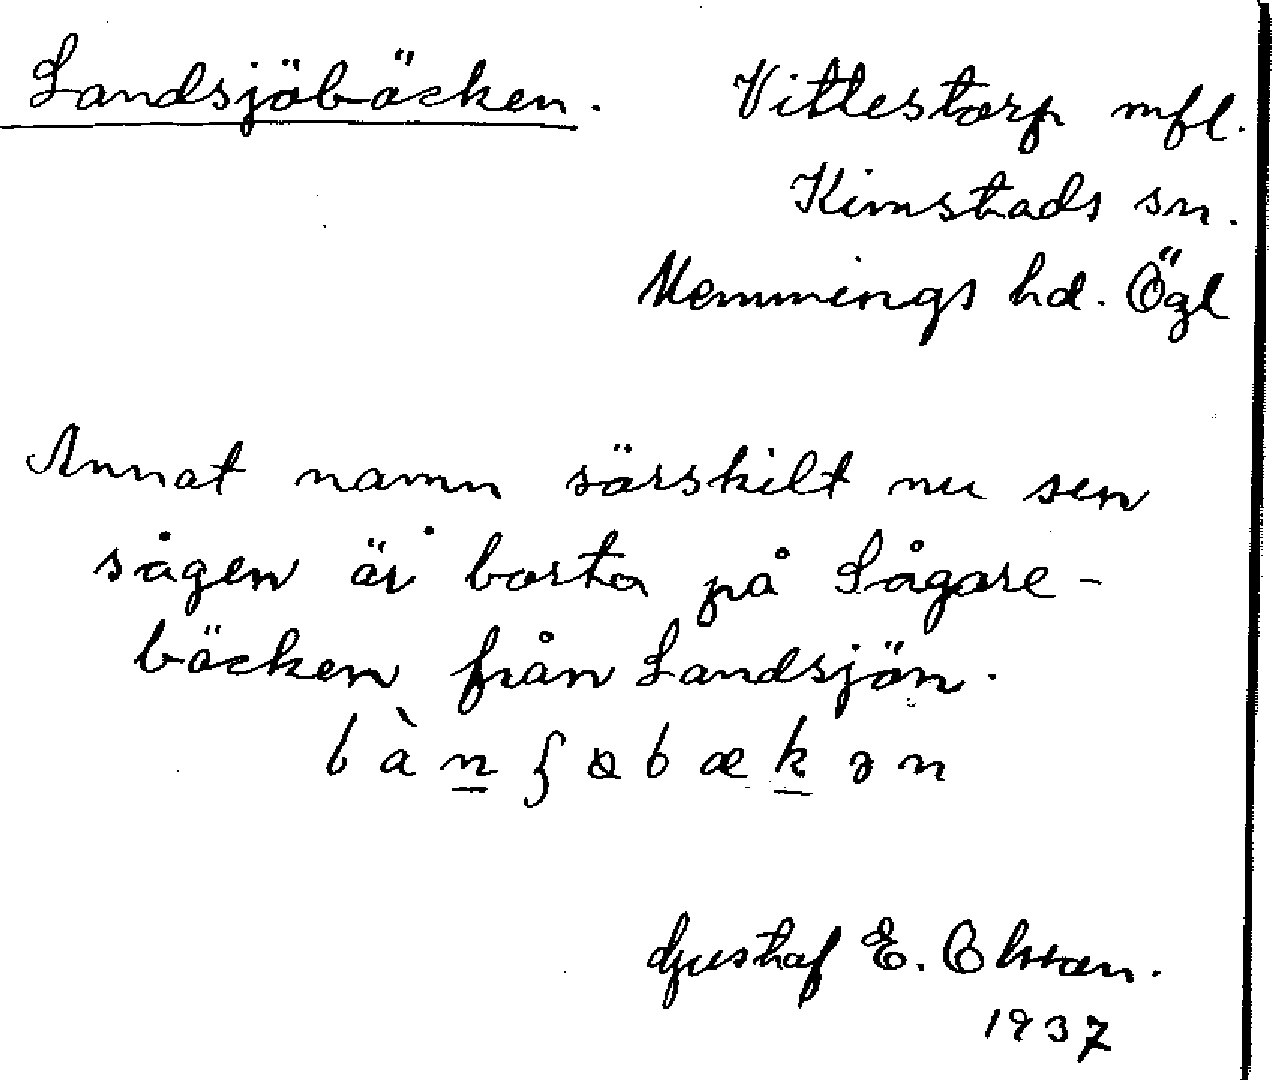 Landsjöbäcken.
Vittestorp mfl.
Kimstads sn.
Memmings hd. Ögl
Annat namn särskilt nu sen
sågen är borta på Sågare-
bäcken från Landsjön.
bàn̲ʃꭢbæk̲ən
Gustaf E. Olsson.
1937